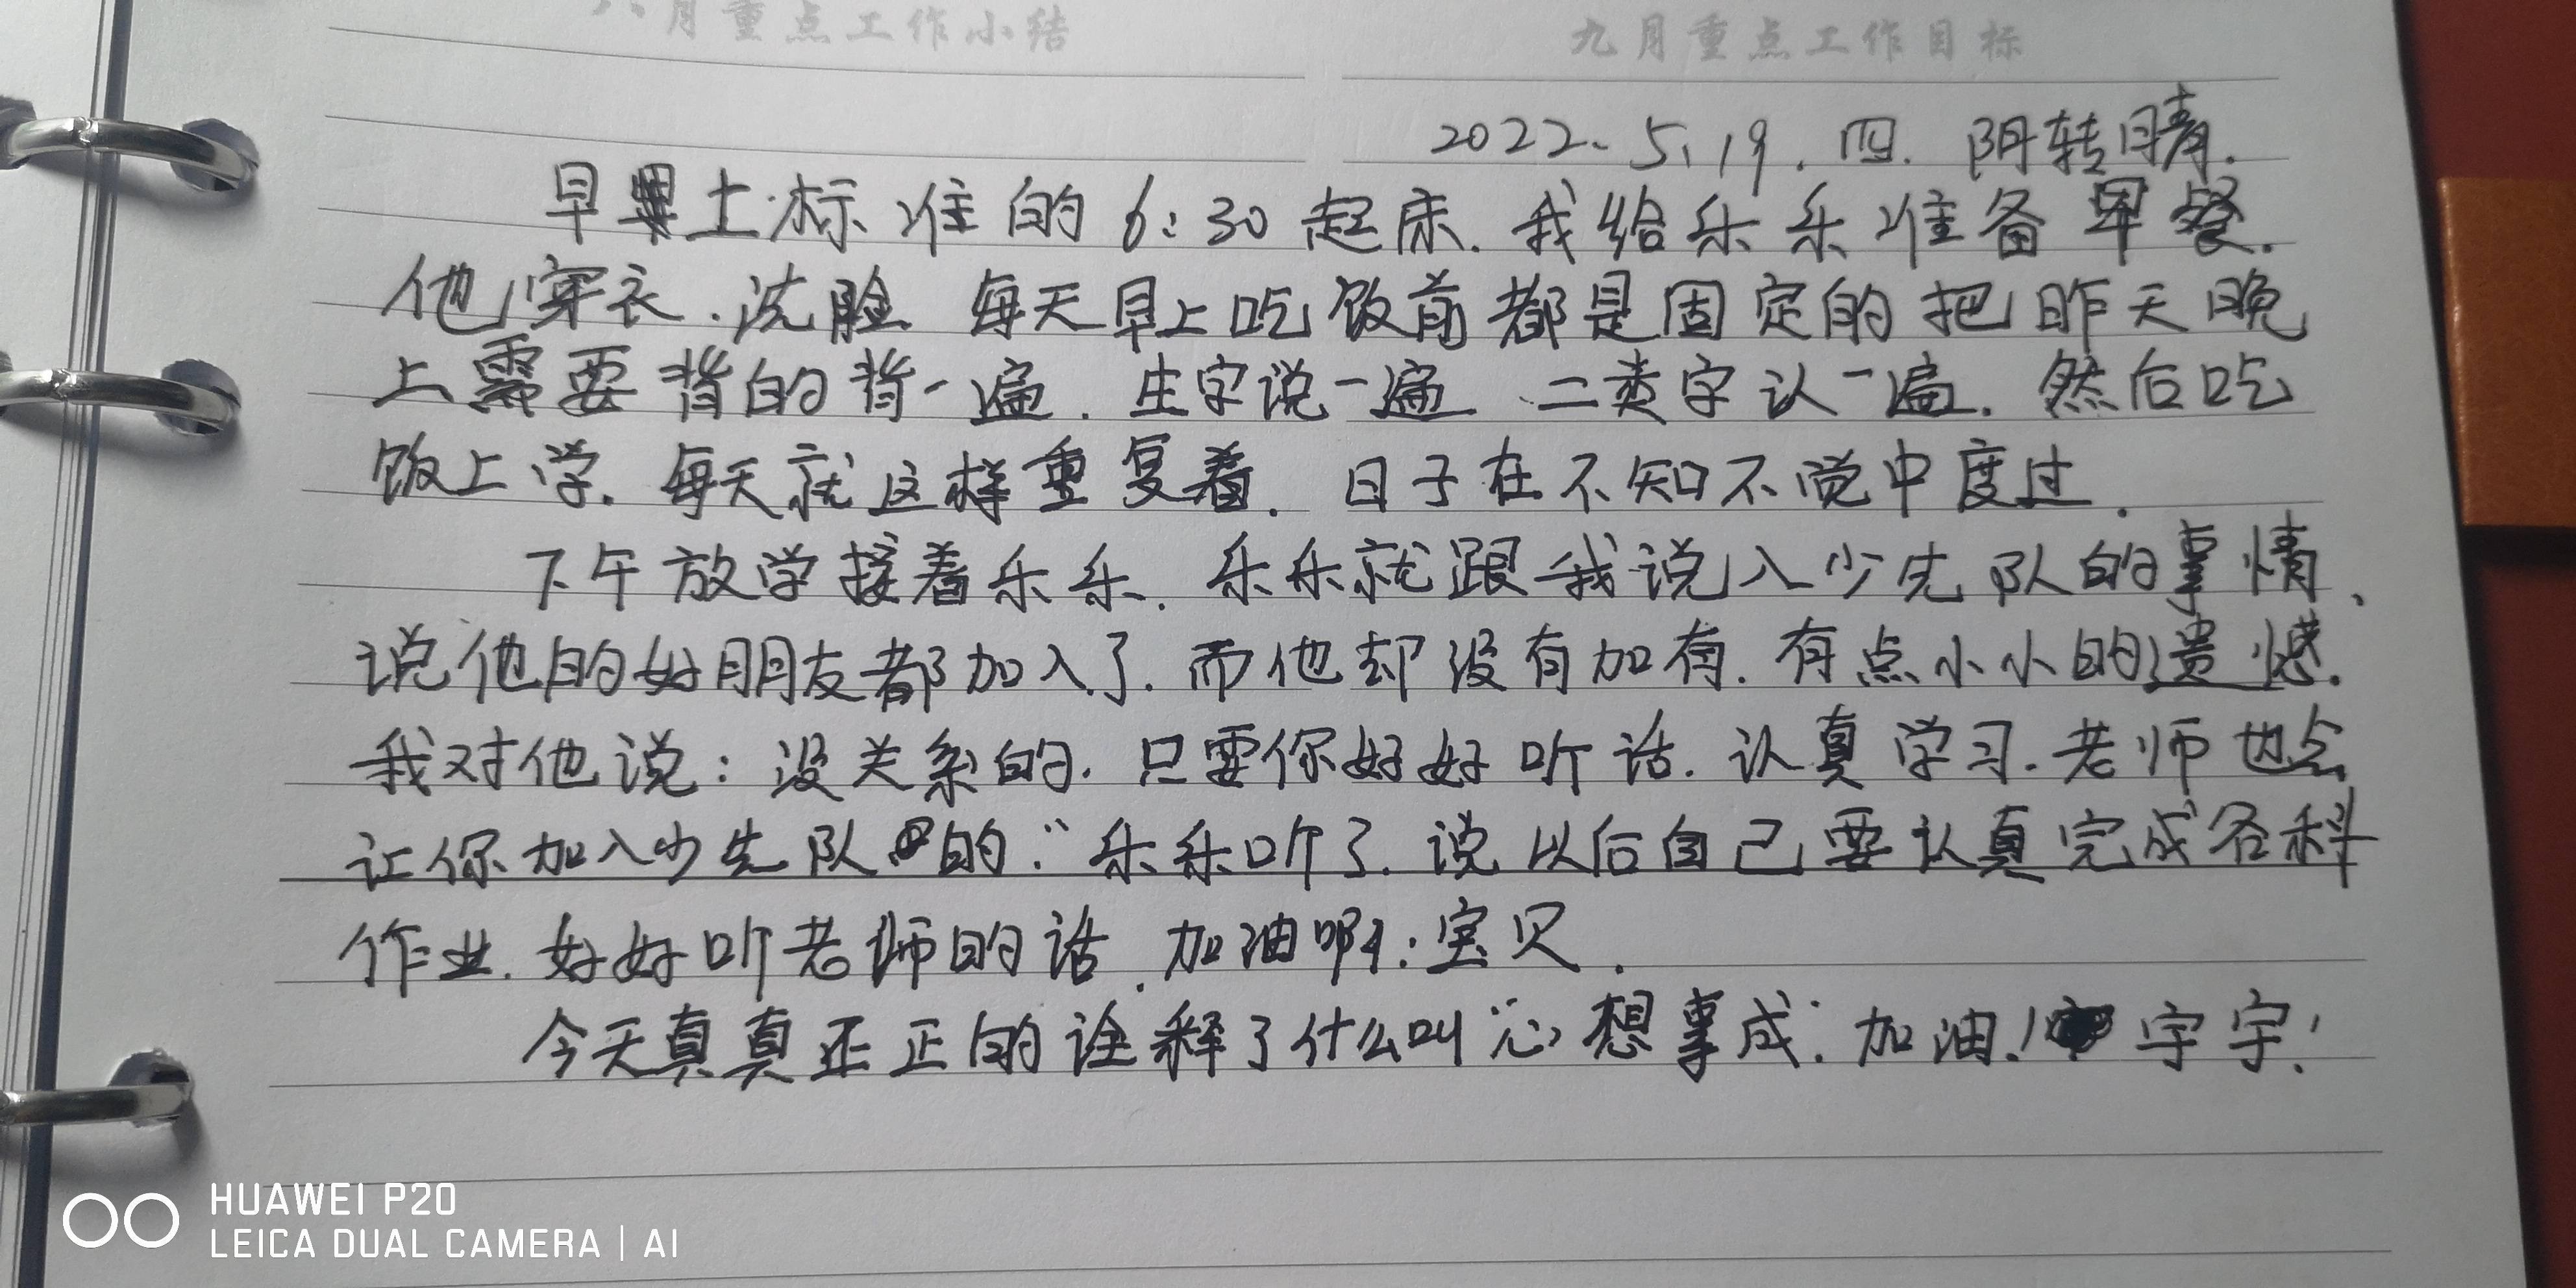 八月重点工作小结
九月重点工作目标
2022.5.19.四.阴转晴.
早上标准的6:30起床.我给乐乐准备早餐.
他穿衣.洗脸 每天早上吃饭前都是固定的把昨天晚
上需要背的背一遍.生字说一遍、二类字认一遍.然后吃
饭上学.每天就这样重复着.日子在不知不觉中度过.
下午放学接着乐乐.乐乐就跟我说入少先队的事情、
说他的好朋友都加入了.而他却没有加有.有点小小的遗憾.
我对他说:没关系的.只要你好好听话.认真学习.老师也会
让你加入少先队的."乐乐听了.说以后自己要认真完成各科
作业.好好听老师的话.加油啊:宝贝.
今天真真正正的诠释了什么叫"心想事成".加油!宇宇!
HUAWEI P20
LEICA DUAL CAMERA | AI